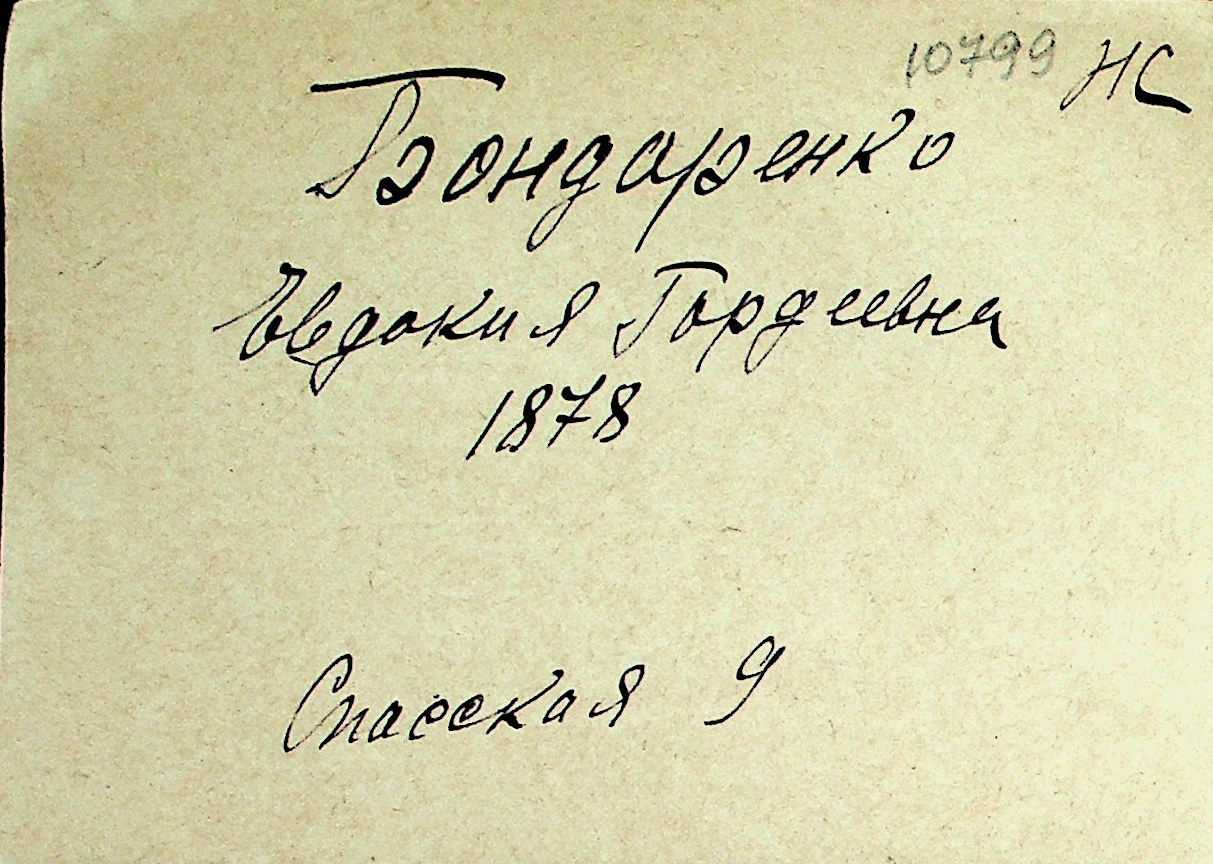 10799 НС
Бондаренко
Евдокия Гордеевна
1878
Спасская 9